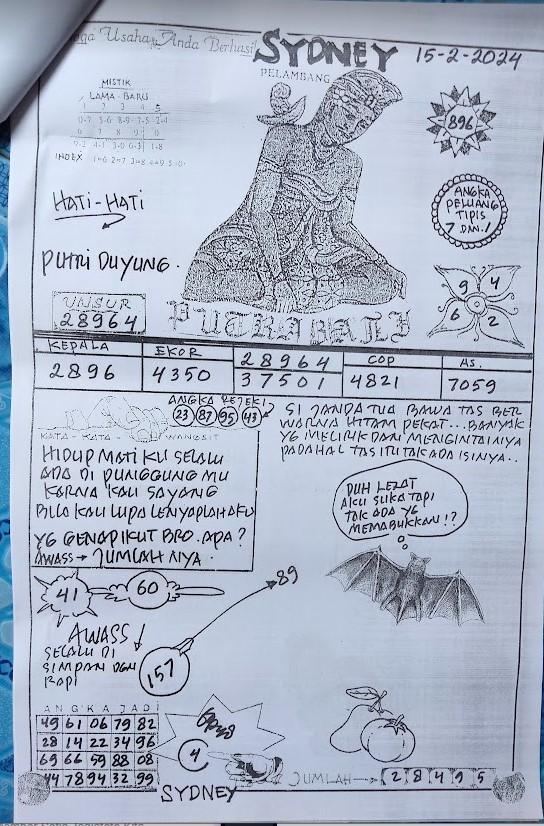 Usaha, Anda Berhasil
SYDNEY
15-2-2024
PELAMBANG
MISTIK
LAMA - BARU
1 2 3 4 5
0-7 5-6 8-9 7-5 2-4
6 7 8 9 0
9-2 4-1 3-0 6-3 1-8
INDEX 1=6 2=7 3=8 4=9 5=0
896
HATI-HATI
ANGKA
PELUANG
TIPIS
7 DAN 1
PUTRI DUYUNG.
9 4
6 2
UNSUR
28964
PUTRA BALI
KEPALA
2896
EKOR
4350
28964
37501
COP
4821
AS.
7059
ANGKA REJEKI
23 87 95 43
SI JANDA TUA BAWA TAS BER
WARNA HITAM PEKAT... BANYAK
YG MELIRIK DAN MENGINTAINYA
PADAHAL TAS ITU TAK ADA ISINYA..
KATA - KATA - WANGSIT
HIDUP MATI KU SELALU
ADA DI PUNGGUNG MU
KARNA KAU SAYANG
BILA KAU LUPA LENYAPLAH AKU
YG GENAP IKUT BRO. APA?
AWASS → JUMLAH NYA.
DUH LEZAT
AKU SUKA TAPI
TAK ADA YG
MEMABUKKAN!?
41
60
89
AWASS!
SELALU DI
SIMPAN DGN
RAPI
157
ANGKA JADI
49 61 06 79 82
28 14 22 34 96
69 66 59 88 08
44 78 94 32 99
4
JUMLAH → 2 8 4 9 5
SYDNEY